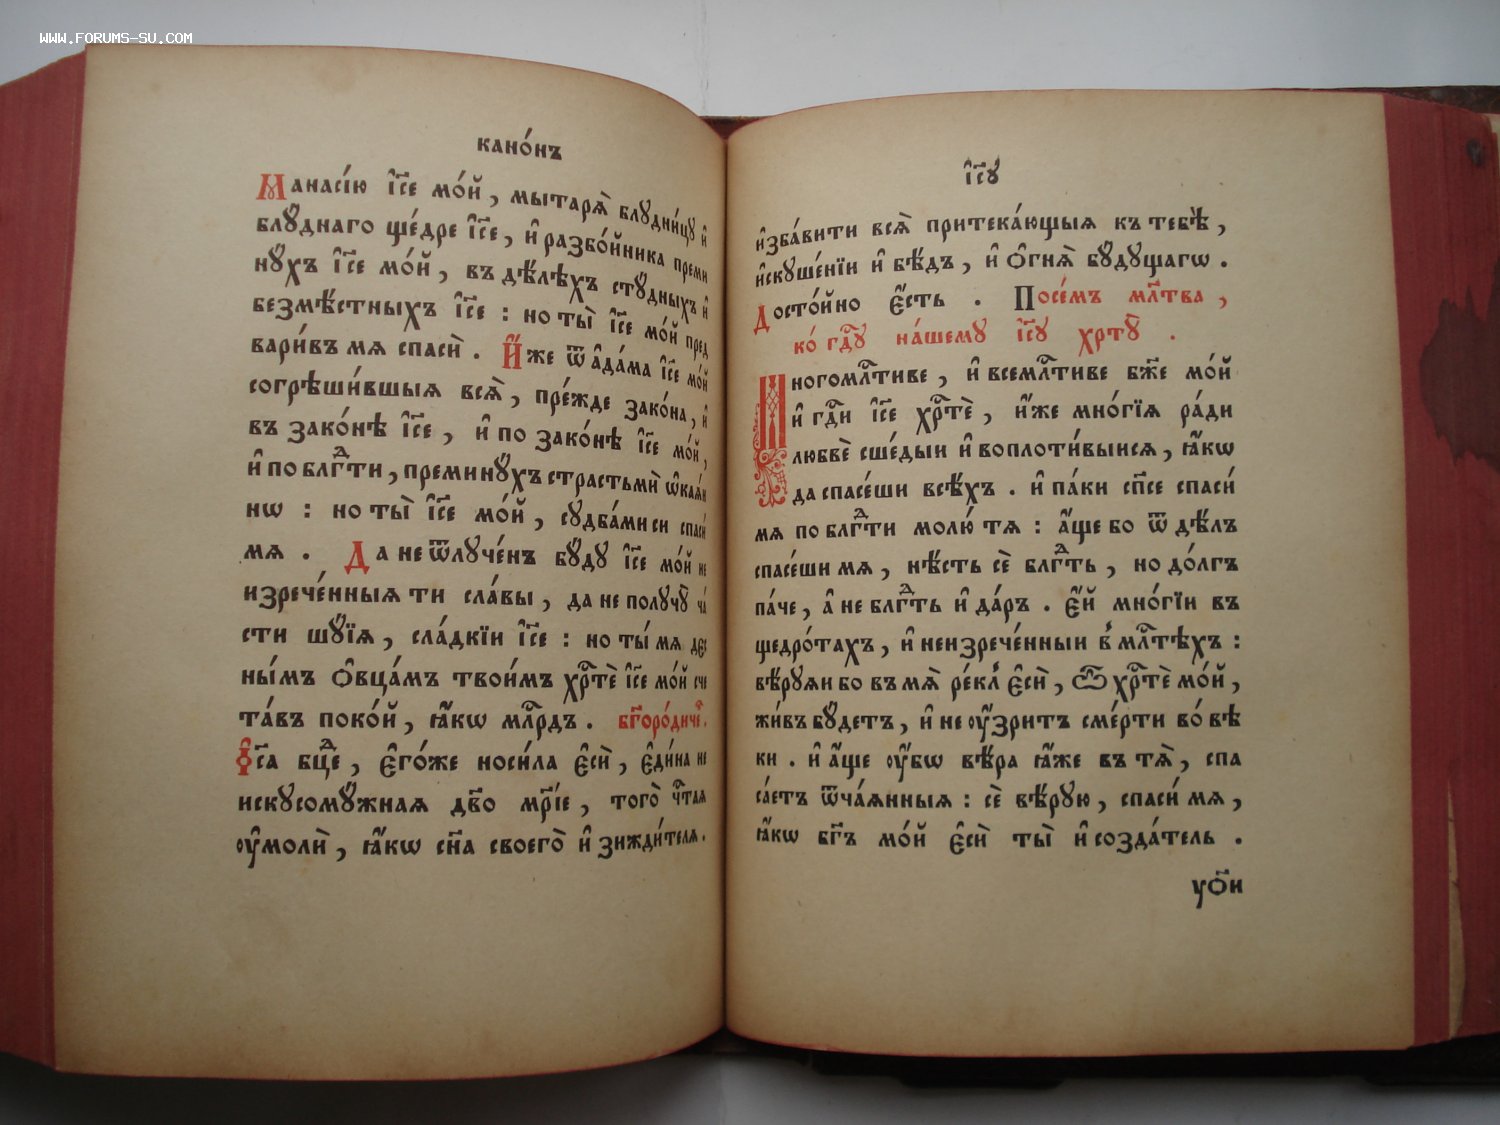 WWW.FORUMS-SU.COM
кано́нъ
Манасі́ю і҆҃се мо́й, мытарѧ̀ блꙋдни́цꙋ и҆
блꙋ́днаго ще́дре і҆҃се, и҆ разбо́йника преми
нꙋ́хъ і҆҃се мо́й, въ дѣ́лѣхъ стꙋ́дныхъ и҆
безмѣ́стныхъ і҆҃се : но ты̀ і҆҃се мо́й пред
вари́въ мѧ спасѝ . И҆́же ѿ а҆да́ма і҆҃се мо́й
согрѣши́вшыѧ всѧ̀, пре́жде зако́на, и҆
въ зако́нѣ і҆҃се, и҆ по зако́нѣ і҆҃се мо́й,
и҆ по блгⷣти, преминꙋ́хъ страстьмѝ ѡ҆каѧ́н
нѡ : но ты̀ і҆҃се мо́й, сꙋдба́ми си спаси́
мѧ . Да не ѿлꙋче́нъ бꙋ́дꙋ і҆҃се мо́й не
изрече́нныѧ ти сла́вы, да не полꙋчꙋ̀ ча́
сти шꙋ́їѧ, сла́дкїи і҆҃се : но ты́ мѧ дес
ны́мъ ѻ҆вца́мъ твои́мъ хрⷭ҇тѐ і҆҃се мо́й сче
та́въ поко́й, ꙗ҆́кѡ млⷭ҇рдъ . бг҃оро́диче́ⷩ .
І҆҃са бцⷣе, є҆го́же носи́ла є҆сѝ, є҆ди́на не
искꙋсомꙋ́жнаѧ дв҃о мр҃і́е, того̀ чтⷭ҇аѧ
ᲂу҆молѝ, ꙗ҆́кѡ сн҃а своего̀ и҆ зижди́телѧ.
і҆҃сꙋ
и҆зба́вити всѧ̀ притека́ющыѧ къ тебѣ̀,
и҆скꙋше́нїи и҆ бѣ́дъ, и҆ ѻ҆гнѧ̀ бꙋ́дꙋщагѡ .
Досто́йно є҆́сть . По се́мъ мл҃тва,
ко́ гдⷭ҇ꙋ на́шемꙋ і҆҃сꙋ хр҃тꙋ̀ .
Многомлⷭ҇тиве, и҆ всемлⷭ҇тиве бж҃е мо́й
и҆ гдⷭ҇и і҆҃се хрⷭ҇тѐ, и҆́же мно́гїѧ ра́ди
любвѐ сше́дыи и҆ воплоти́выисѧ, ꙗ҆́кѡ
да спасе́ши всѣ́хъ . и҆ па́ки сп҃се спаси́
мѧ по блгⷣти молю́ тѧ : а҆́ще бо ѿ дѣ́лъ
спасе́ши мѧ, нѣ́сть сѐ блгⷣть, но до́лгъ
па́че, а҆ не блгⷣть и҆ да́ръ . є҆́й мно́гїи въ
щедро́тахъ, и҆ неизрече́нныи в̾ млⷭ҇тѣхъ :
вѣ́рꙋѧи бо въ мѧ̀ ре́кл̾ є҆сѝ, ѽ хрⷭ҇тѐ мо́й,
жи́въ бꙋ́детъ, и҆ не ᲂу҆́зритъ сме́рти во́ вѣ
ки . и҆ а҆́ще ᲂу҆́бѡ вѣ́ра ꙗ҆́же въ тѧ̀, спа
са́етъ ѿча́ѧнныѧ : сѐ вѣ́рꙋю, спаси́ мѧ,
ꙗ҆́кѡ бг҃ъ мо́й є҆сѝ ты̀ и҆ созда́тель .